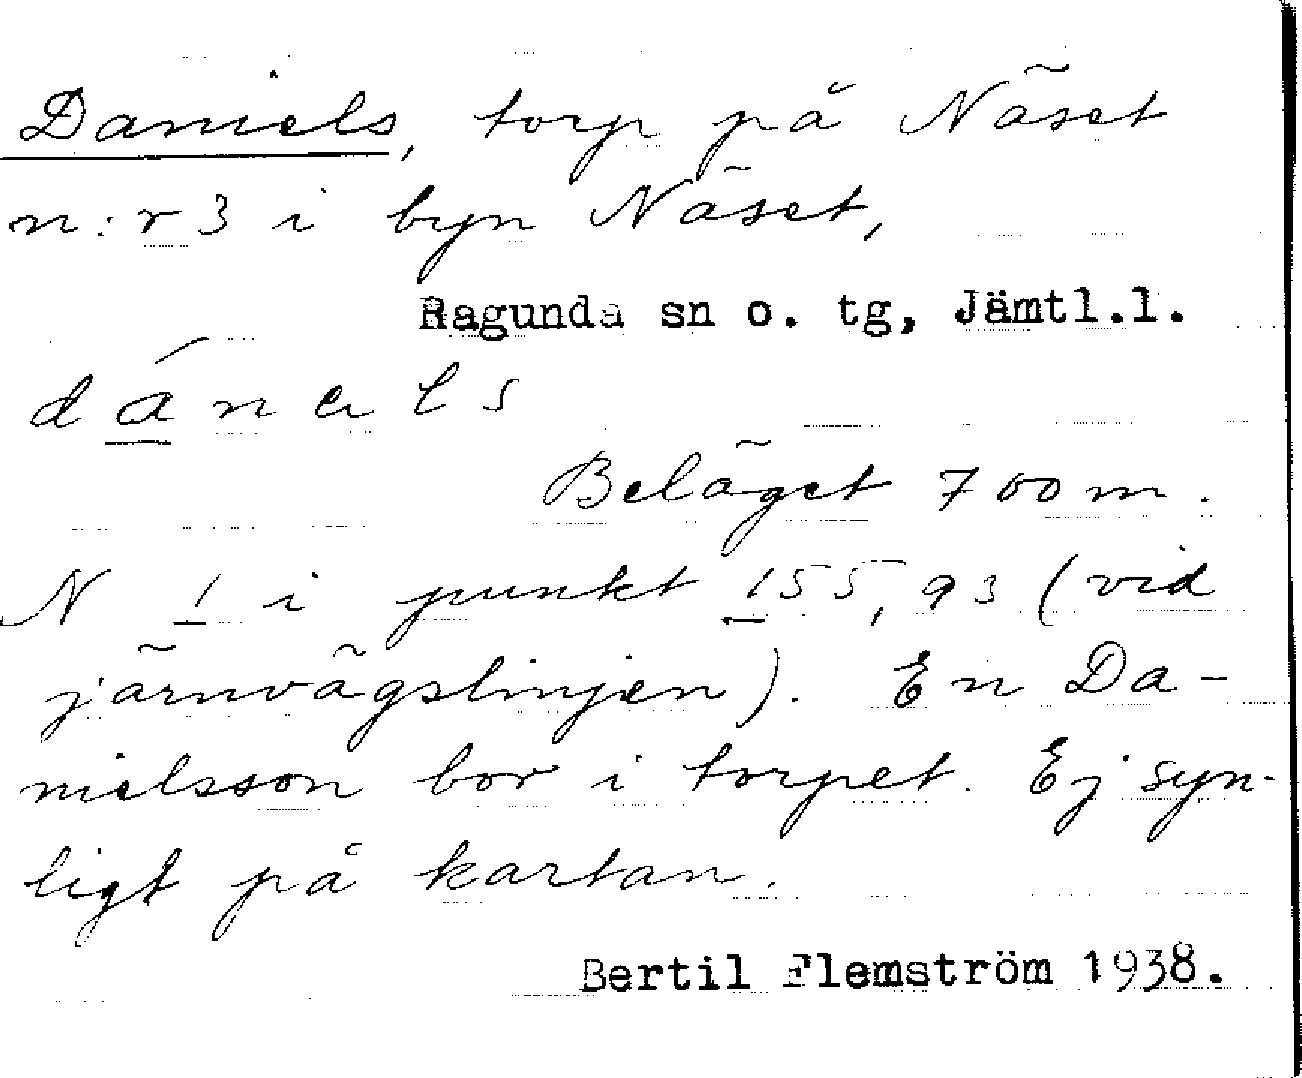 Daniels, torp på Näset
n:r 3 i byn Näset,
Ragunda sn o. tg, Jämtl.l.
Beläget 700 m.
N 1 i punkt 155,93 (vid
järnvägslinjen). En Da-
nielsson bor i torpet. Ej syn-
ligt på kartan.
Bertil Flemström 1938.